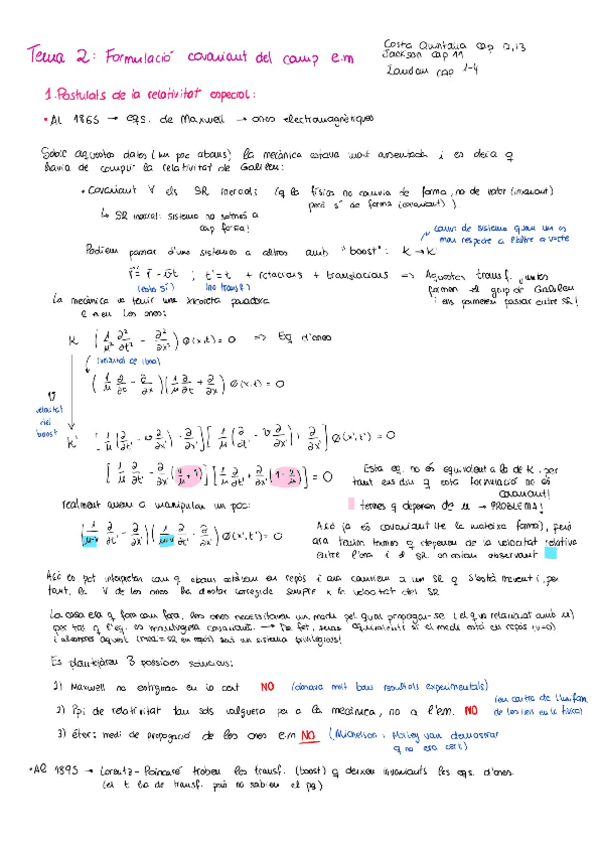 Tema 2: Formulació covariant del camp e.m
Costa Quintana cap 12,13
Jackson cap 11
Landau cap 1-4
1. Postulats de la relativitat especial:
• Al 1865 → eqs. de Maxwell → ones electromagnètiques
Sobre aquestes dates (un poc abans) la mecànica estava molt assentada i es deia q
havia de complir la relativitat de Galileu:
• Covariant ∀ els SR inercials (q la física no canvia de forma, no de valor (invariant)
però sí de forma (covariant))
↳ SR inercial: sistema no sotmès a
cap força!
canvi de sistema quan un es
mou respecte a l'altre a v=cte
Podiem passar d'uns sistemes a altres amb "boost": K → K'
r⃗' = r⃗ - v⃗t ; t' = t + rotacions + translacions ⇒ Aquestes transf. juntes
(esta sí) (no transf.) formen el grup de Galileu
i ens permeten passar entre SR!
La mecànica va tenir una xicoteta paradoxa
en les ones:
K (1/μ² ∂²/∂t² - ∂²/∂x²) Φ(x,t) = 0 ⇒ Eq d'ones
(1/μ ∂/∂t - ∂/∂x)(1/μ ∂/∂t + ∂/∂x) Φ(x,t) = 0
v
velocitat
del
boost
K' [1/μ(∂/∂t' - v ∂/∂x') - ∂/∂x'][1/μ(∂/∂t' - v ∂/∂x') + ∂/∂x'] Φ(x',t') = 0
[1/μ ∂/∂t' - ∂/∂x'(v/μ + 1)][1/μ ∂/∂t' + ∂/∂x'(1 - v/μ)] = 0
Esta eq. no és equivalent a la de K, per
tant ens diu q esta formulació no és
covariant!
termes q depenen de μ → PROBLEMA!
realment anem a manipular un poc:
Açò ja és covariant (té la mateixa forma), però
ara tenim termes q depenen de la velocitat relativa
entre l'ona i el SR on estan observant
Açò es pot interpretar com q abans estàvem en repòs i ara canviem a un SR q s'està movent i, per
tant, la V de les ones ha d'estar corregida sempre x la velocitat del SR
La cosa era q fora com fora, les ones necessitaven un medi pel qual propagar-se
Es plantejaren 3 possibles solucions:
1) Maxwell no estiguera en lo cert NO (donava molt bons resultats experimentals)
2) Ppi de relativitat tan sols valguera per a la mecànica, no a l'em. NO (en contra de l'unifor.
de les lleis en la física)
3) èter: medi de propagació de les ones e.m NO. (Michelson i Morley van demostrar
q no era cert)
• Al 1895 → Lorentz-Poincaré troben les transf. (boost) q deixen invariants les eqs. d'ones
(el t ha de transf. però no sabien el pq)